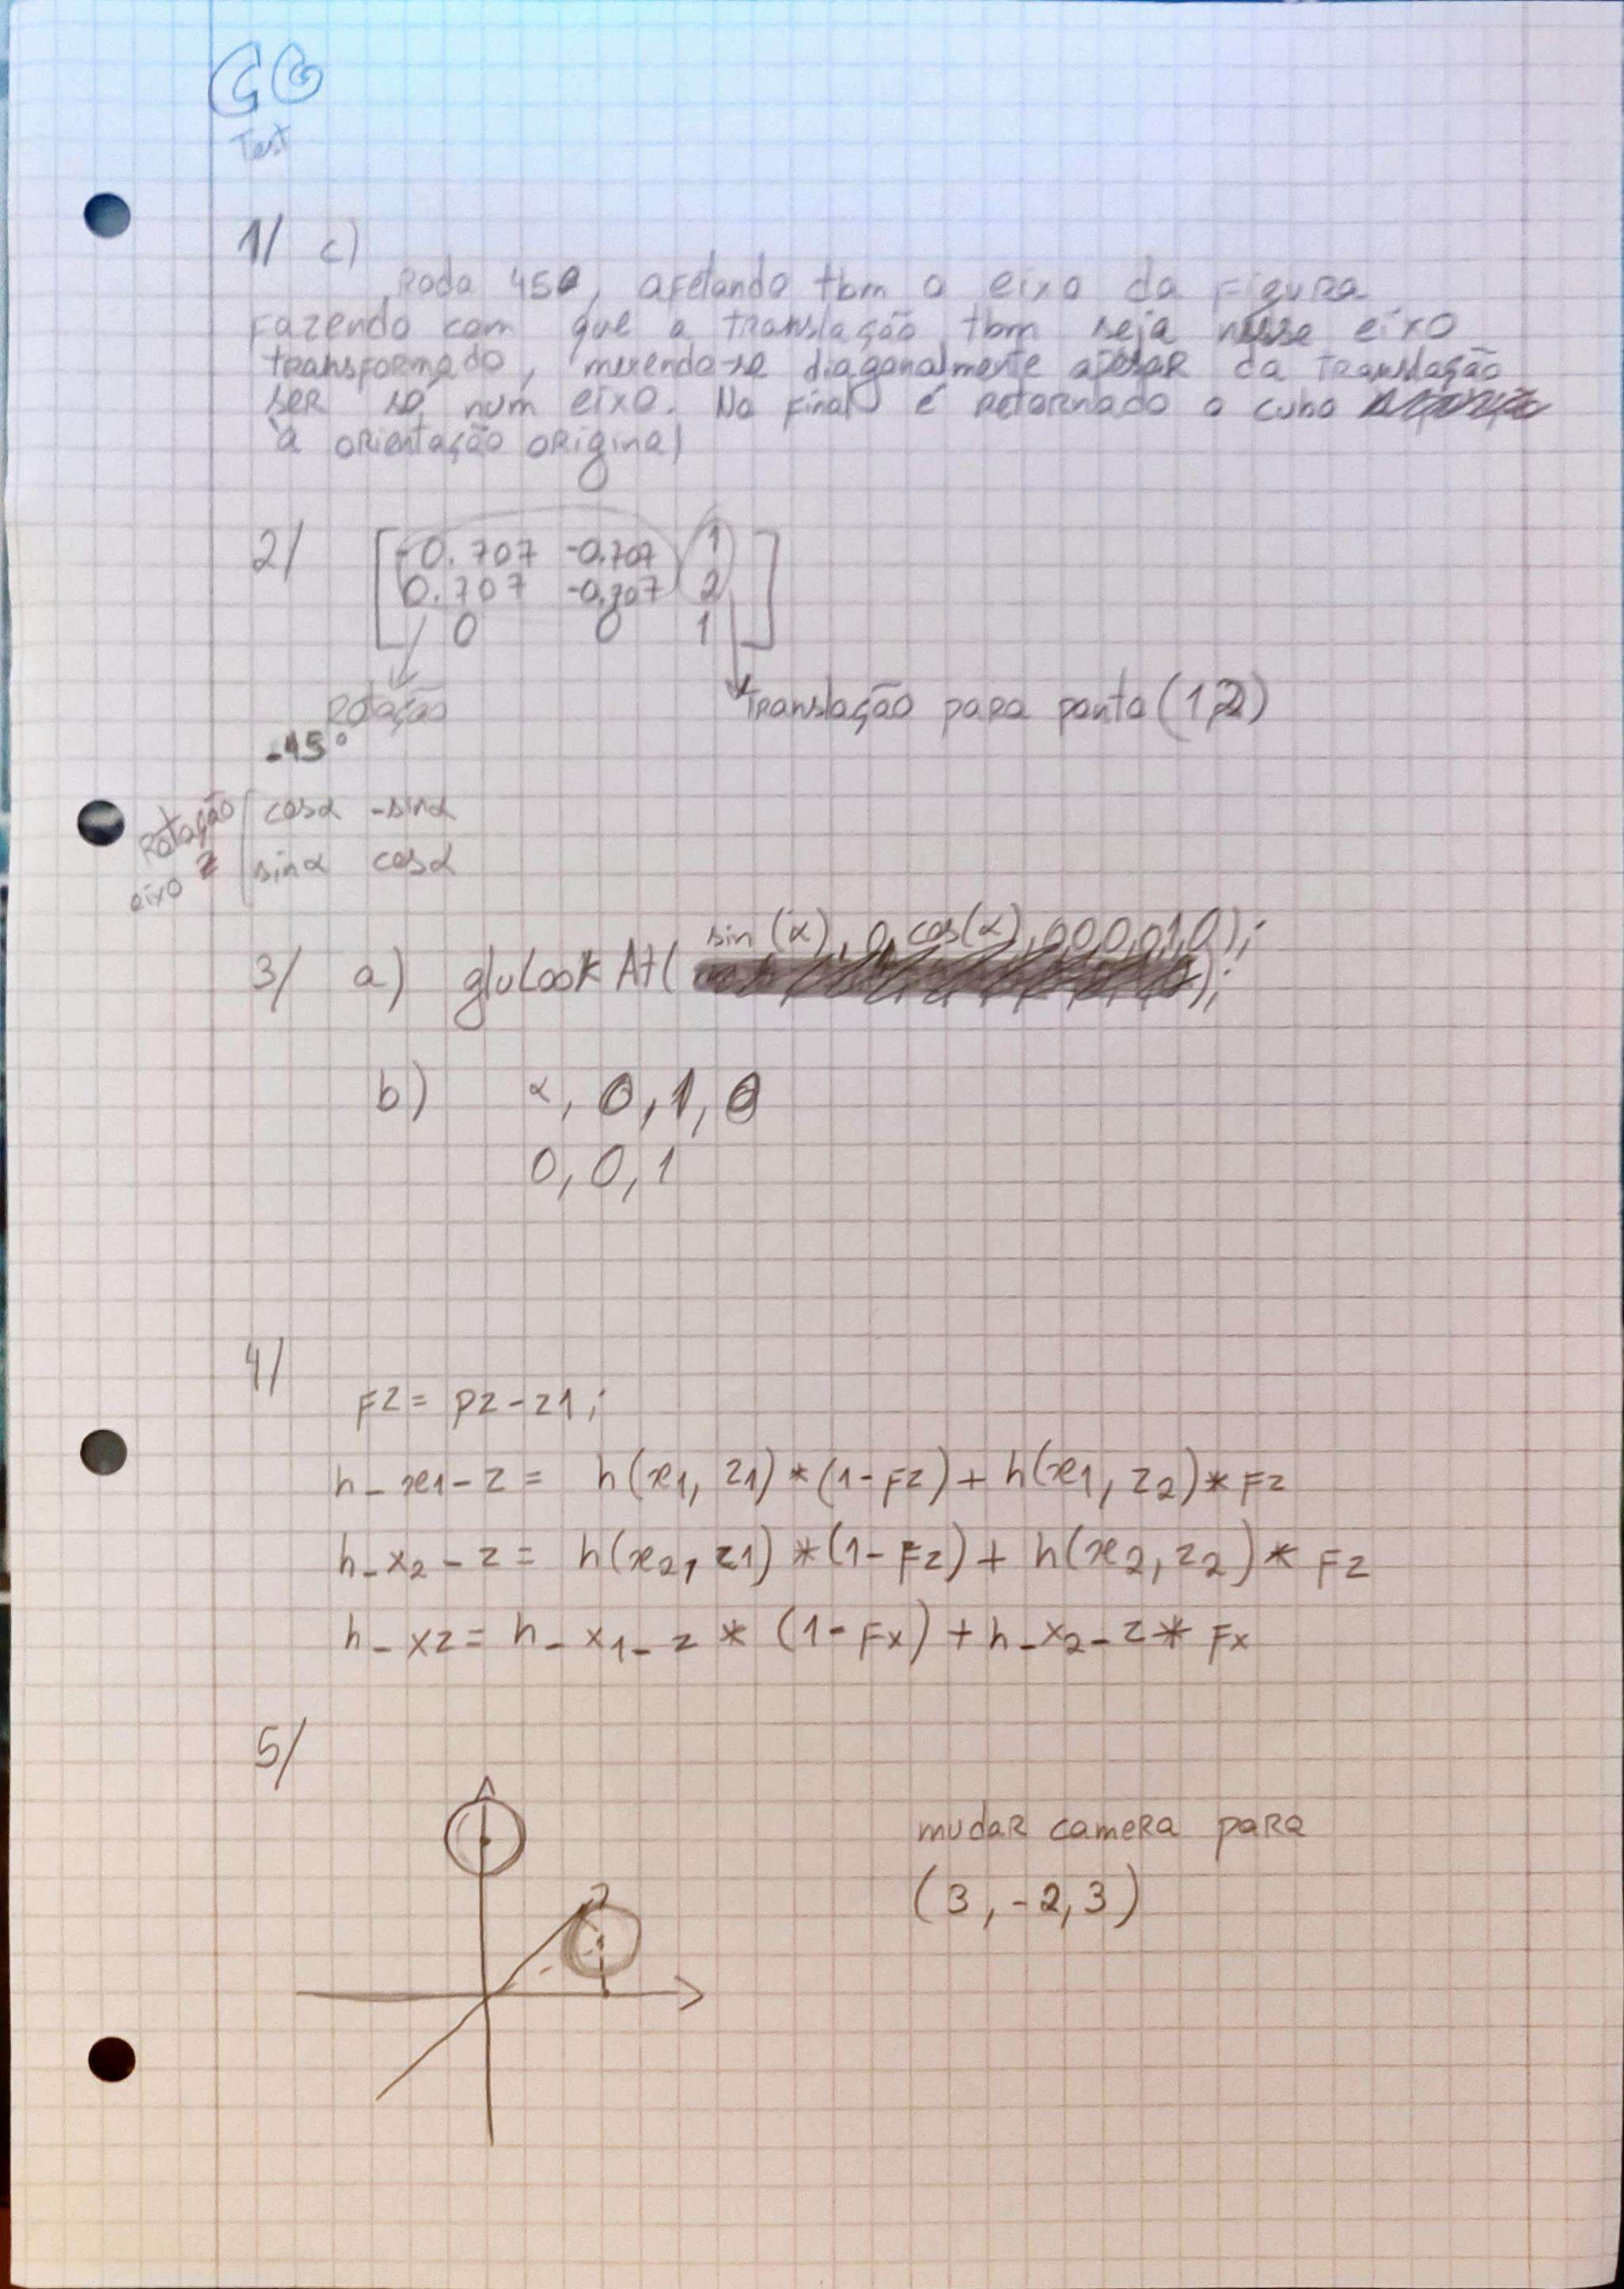 CG
Test
1/ c)
Roda 45º, afetando tbm o eixo da figura
fazendo com que a translação tbm seja nesse eixo
transformado, mexendo-se diagonalmente apesar da translação
ser só num eixo. No final é retornado o cubo
à orientação original
2/
[-0.707 -0.707 1
0.707 -0.707 2
0 0 1]
Rotação
Translação para ponto (1,2)
-45°
Rotação eixo z
cosα -sinα
sinα cosα
3/ a) gluLookAt( sin(α), 0, cos(α), 0,0,0,0,1,0);
);
b) α, 0, 1, 0
0, 0, 1
4/
Fz = Pz - z1;
h_x1_z = h(x1, z1) * (1-Fz) + h(x1, z2) * Fz
h_x2_z = h(x2, z1) * (1-Fz) + h(x2, z2) * Fz
h_xz = h_x1_z * (1-Fx) + h_x2_z * Fx
5/
mudar camera para
(3, -2, 3)